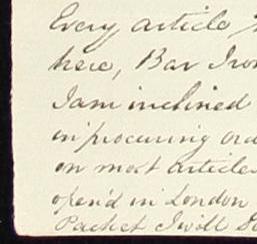 Every article
here, Bar Iron
I am inclined
in procuring
on most articles
open'd in London
Packet I will